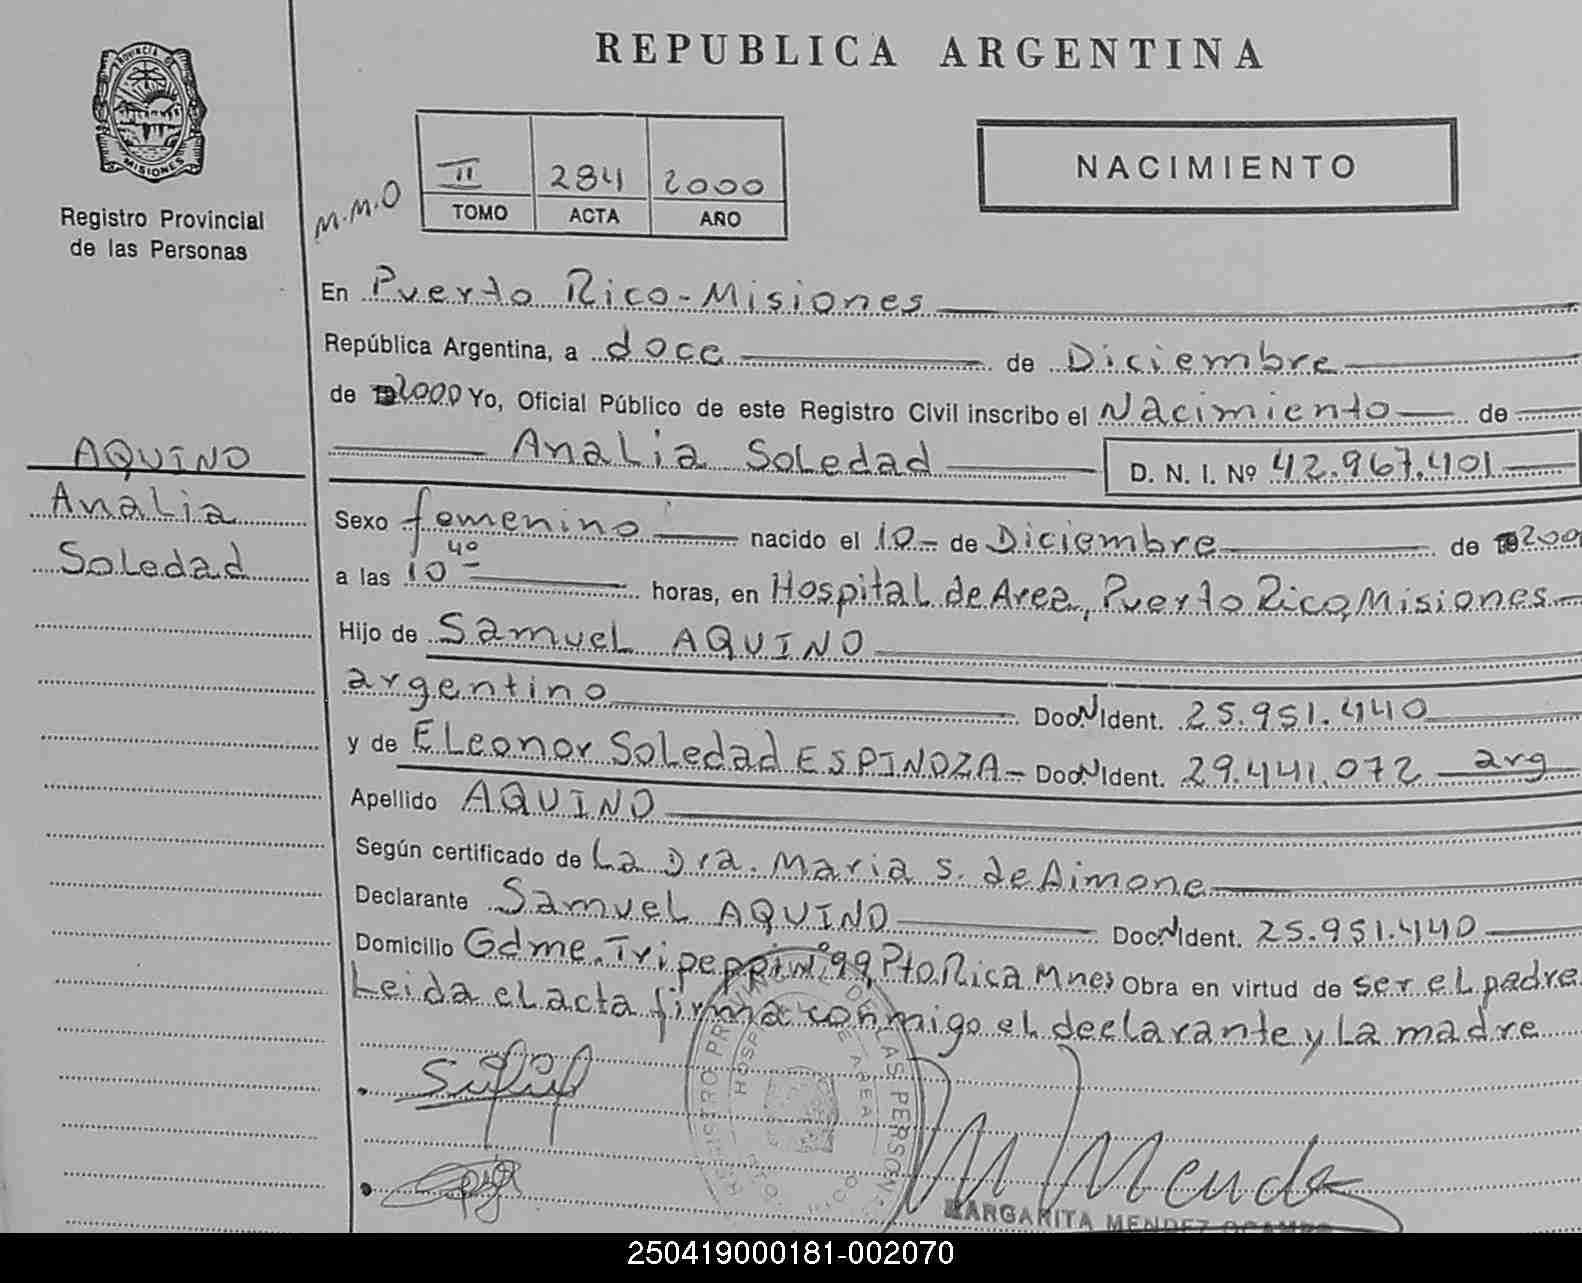 REPUBLICA ARGENTINA
PROVINCIA DE
MISIONES
Registro Provincial
de las Personas
M.M.O
II 284 2000
TOMO ACTA AÑO
NACIMIENTO
En Puerto Rico - Misiones
República Argentina, a doce de Diciembre
de 2000 Yo, Oficial Público de este Registro Civil inscribo el Nacimiento de
Analia Soledad D. N. I. Nº 42.967.401
AQUINO
Analia
Soledad
Sexo femenino nacido el 10 - de Diciembre de 200
a las 10 40 horas, en Hospital de Area, Puerto Rico, Misiones
Hijo de Samuel AQUINO
argentino Doc. N Ident. 25.951.440
y de ELeonor Soledad ESPINOZA - Doc. N Ident. 29.441.072 arg
Apellido AQUINO
Según certificado de La Dra. Maria S. de Aimone
Declarante Samuel AQUINO Doc. N Ident. 25.951.440
Domicilio Gdme. Tripeppi Nº 99 Pto Rico Mnes Obra en virtud de ser el padre
Leida el acta firma conmigo el declarante y La madre
MARGARITA MENDEZ OCAMPO
250419000181-002070